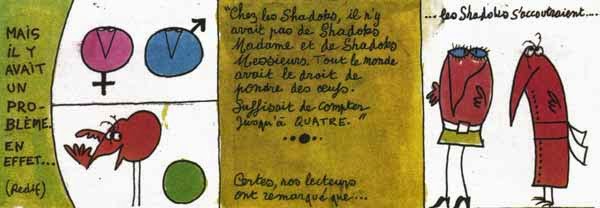 MAIS
IL Y
AVAIT
UN
PRO-
BLÈME.
EN
EFFET...
(Redif)
"Chez les Shadoks, il n'y
avait pas de Shadoks
Madame et de Shadoks
Messieurs. Tout le monde
avait le droit de
pondre des œufs.
Suffisait de compter
jusqu'à QUATRE."
Certes, nos lecteurs
ont remarqué que....
...les Shadoks s'accoutraient....